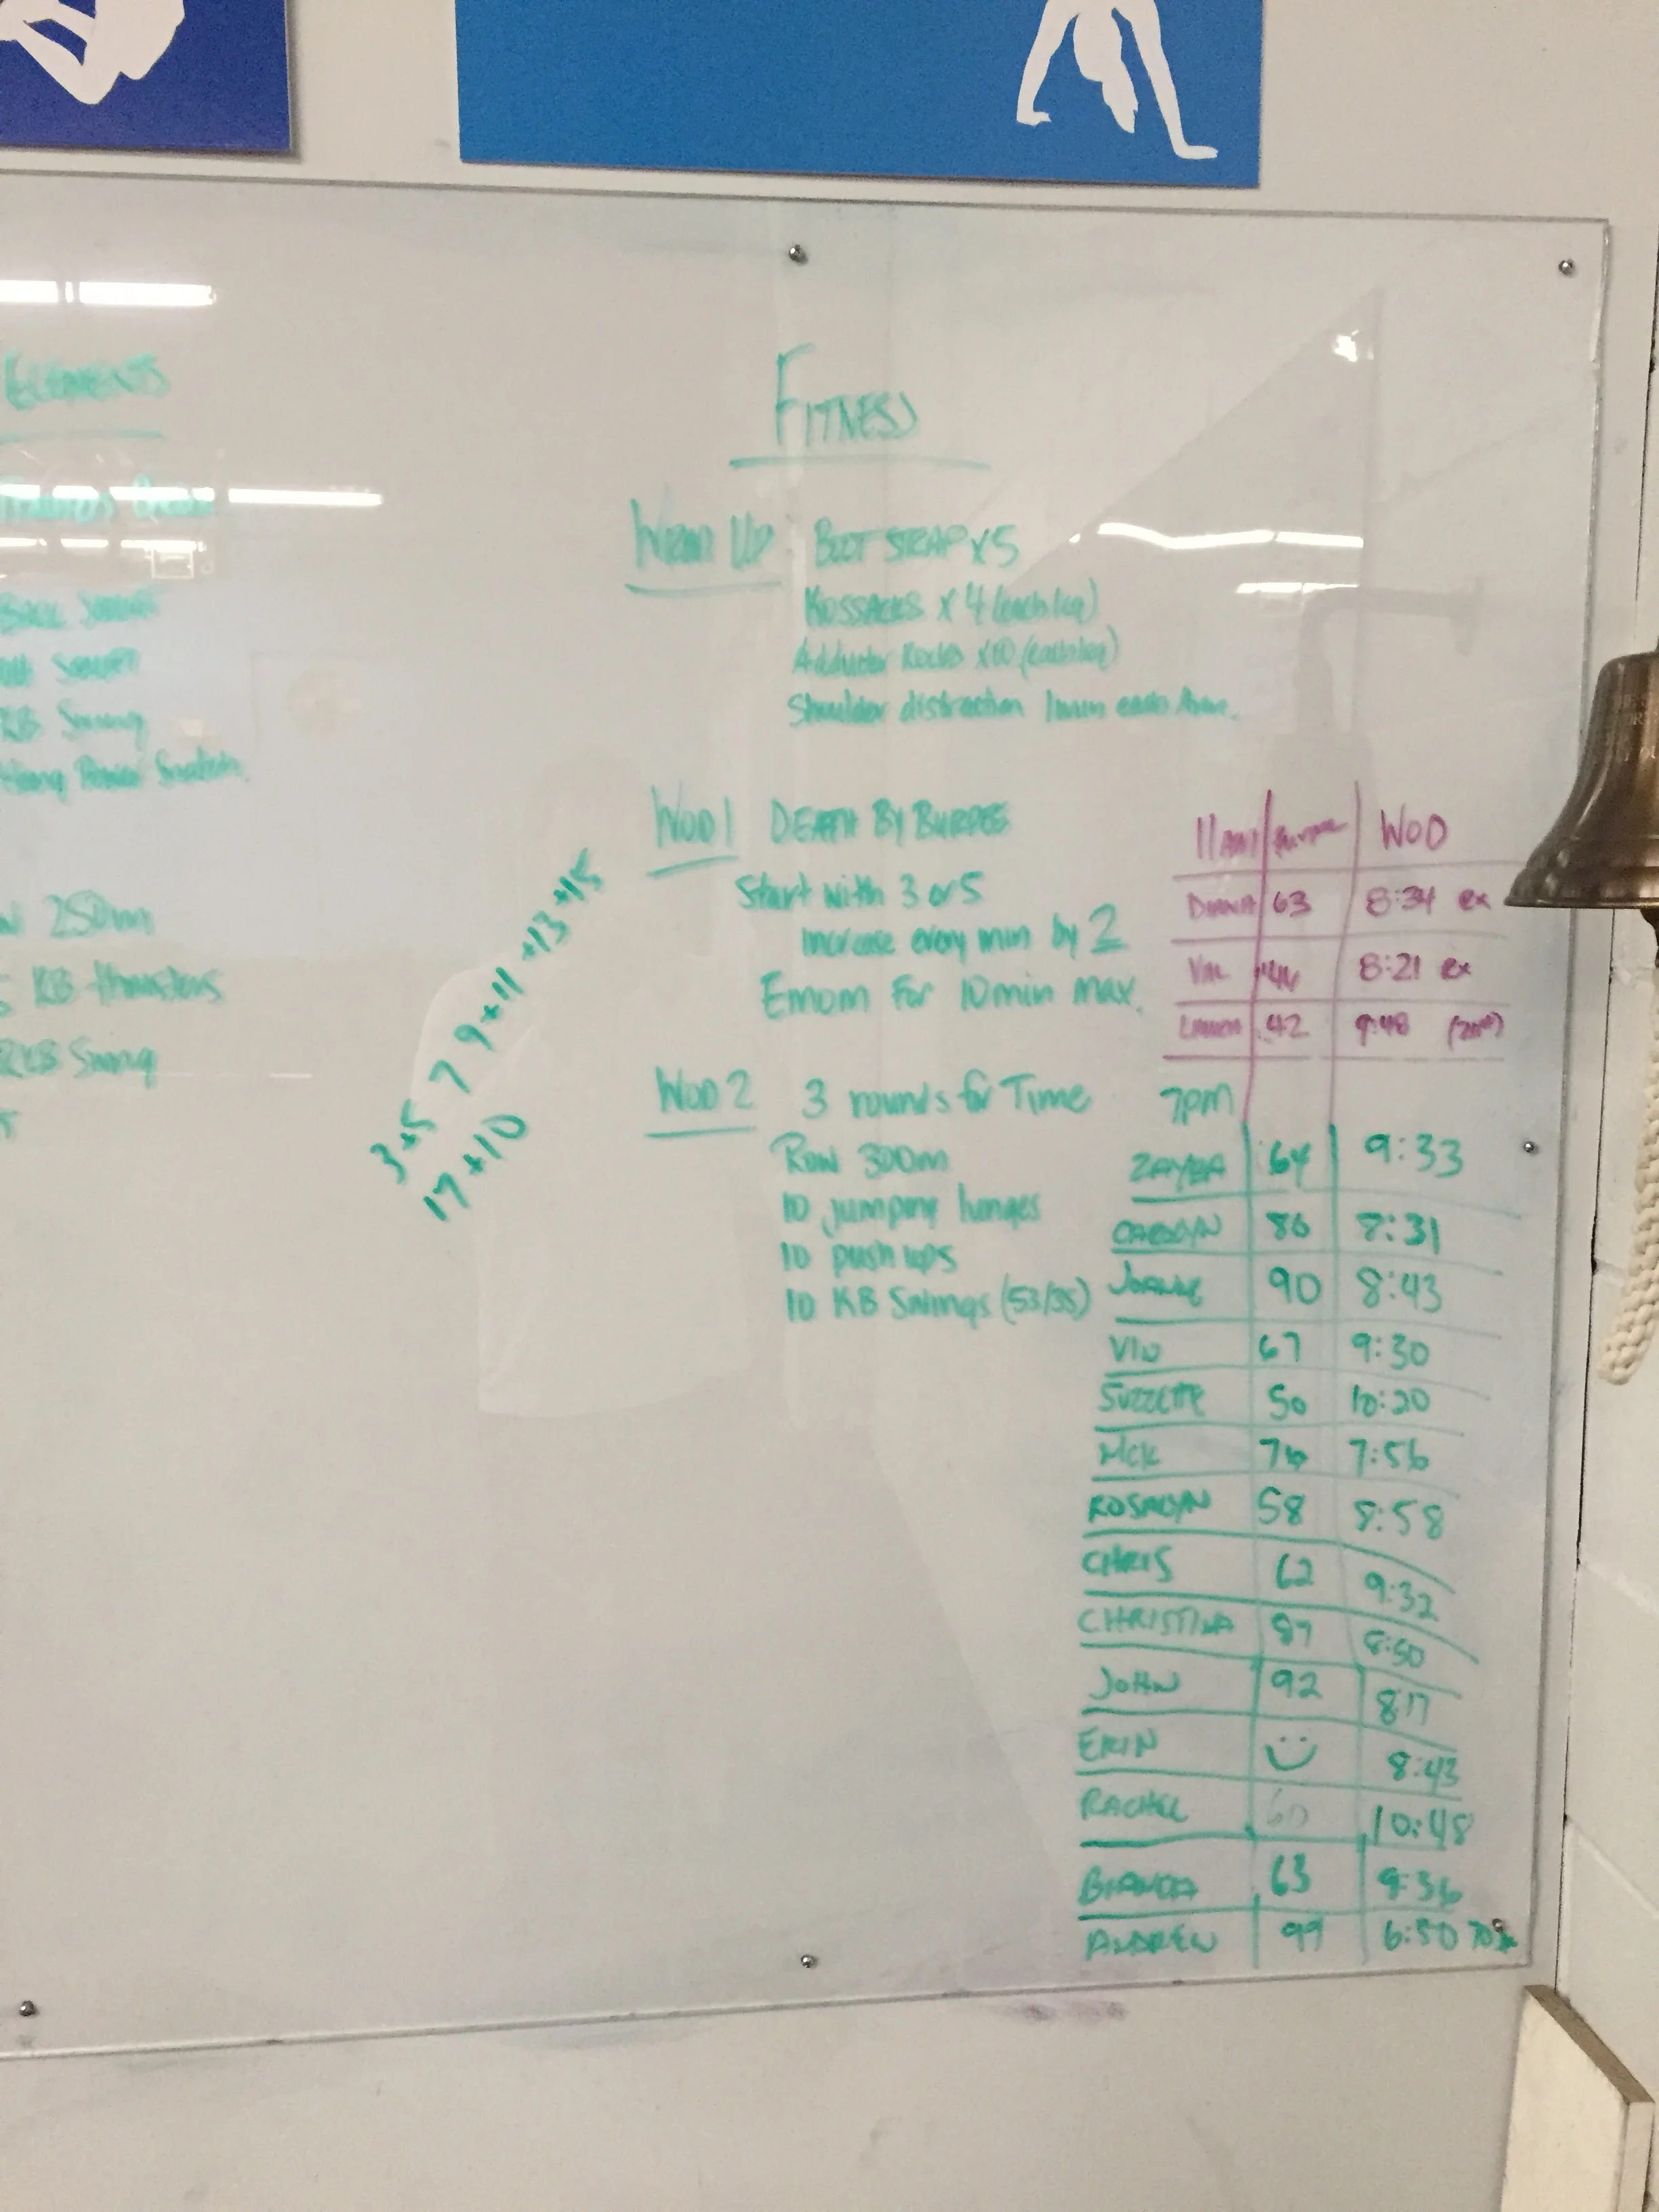 ELEMENTS
BACK SQUAT
SQUAT
KB Swing
Hang Power Snatch.
250m
KB thrusters
RKB Swing
3+5 7 9+11+13+15
17+10
FITNESS
WARM UP BOOTSTRAP x 5
KOSSACKS x 4 (each leg)
Adductor Rocks x10 (each leg)
Shoulder distraction 1min each Arm.
WOD 1 DEATH BY BURPEE
Start with 3 or 5
increase every min by 2
Emom For 10min max.
WOD 2 3 rounds for Time
Row 300m
10 jumping lunges
10 push ups
10 KB Swings (53/35)
11AM Burpee WOD
DIANA 63 8:34 RX
VAL 8:21 RX
LAURA 42 9:48
7pm
ZAYDA 64 9:33
CAROLYN 86 8:31
JOANNE 90 8:43
VIN 67 9:30
SUZZETTE 50 10:20
MCK 76 7:56
ROSALYN 58 8:58
CHRIS 62 9:32
CHRISTINA 87 8:50
JOHN 92 8:17
ERIN 8:43
RACHEL 60 10:48
BIANCA 63 9:36
ANDREW 99 6:50